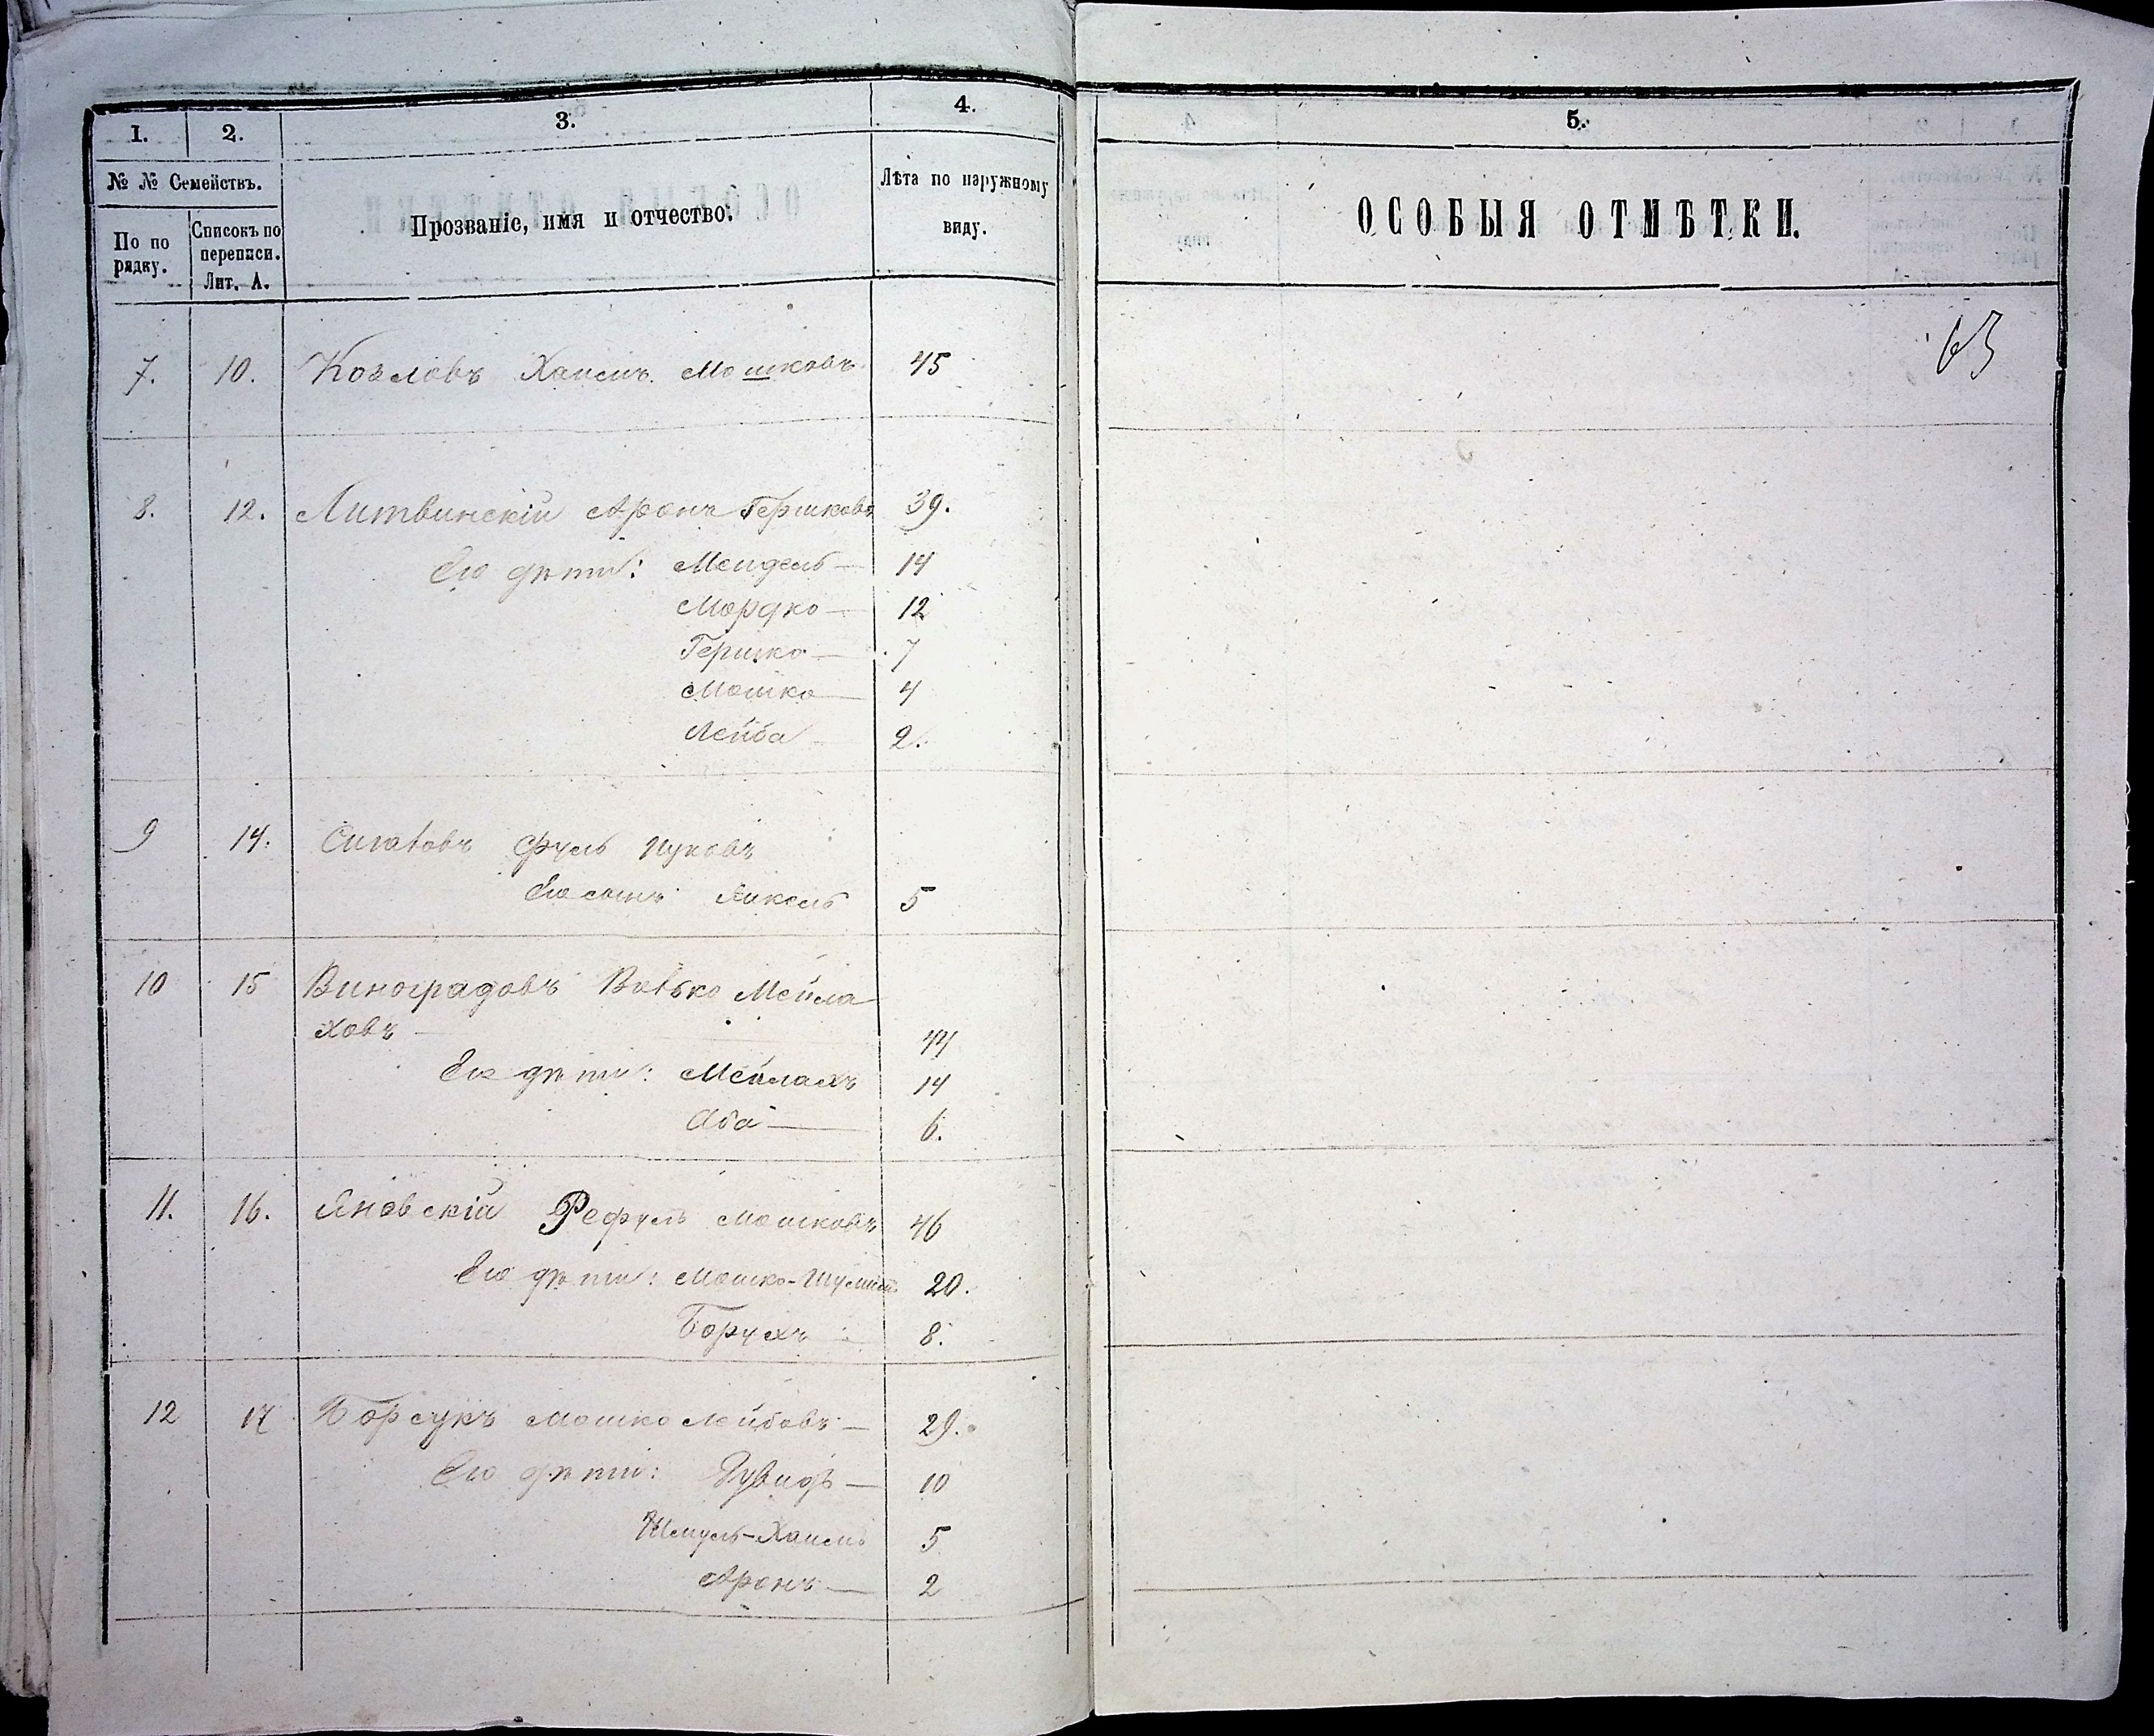 1. 2. 3. 4. 5.
№ № Семействъ.
По по рядку.
Списокъ по переписи. Лит. А.
Прозваніе, имя и отчество.
Лѣта по наружному виду.
ОСОБЫЯ ОТМѢТКИ.
63
7. 10. Козловъ Хаимъ Мошковъ 45
8. 12. Литвинскій Аронъ Гершковъ 39.
Его дѣти: Мендель — 14
Мордко — 12
Гершко — 7
Мошко — 4
Лейба — 2.
9 14.
Его сынъ Янкель 5
10 15 Виноградовъ Вовько Мейла
ховъ — 44
Его дѣти: Мейлахъ 14
Аба — 6.
11. 16. Яновскій Рефуль Мошковъ 46
Его дѣти: Мошко- 20.
Борухъ 8.
12 17 Борсукъ Мошко Лейбовъ — 29.
Его дѣти: — 10
Шмуль-Хаимъ 5
Аронъ — 2